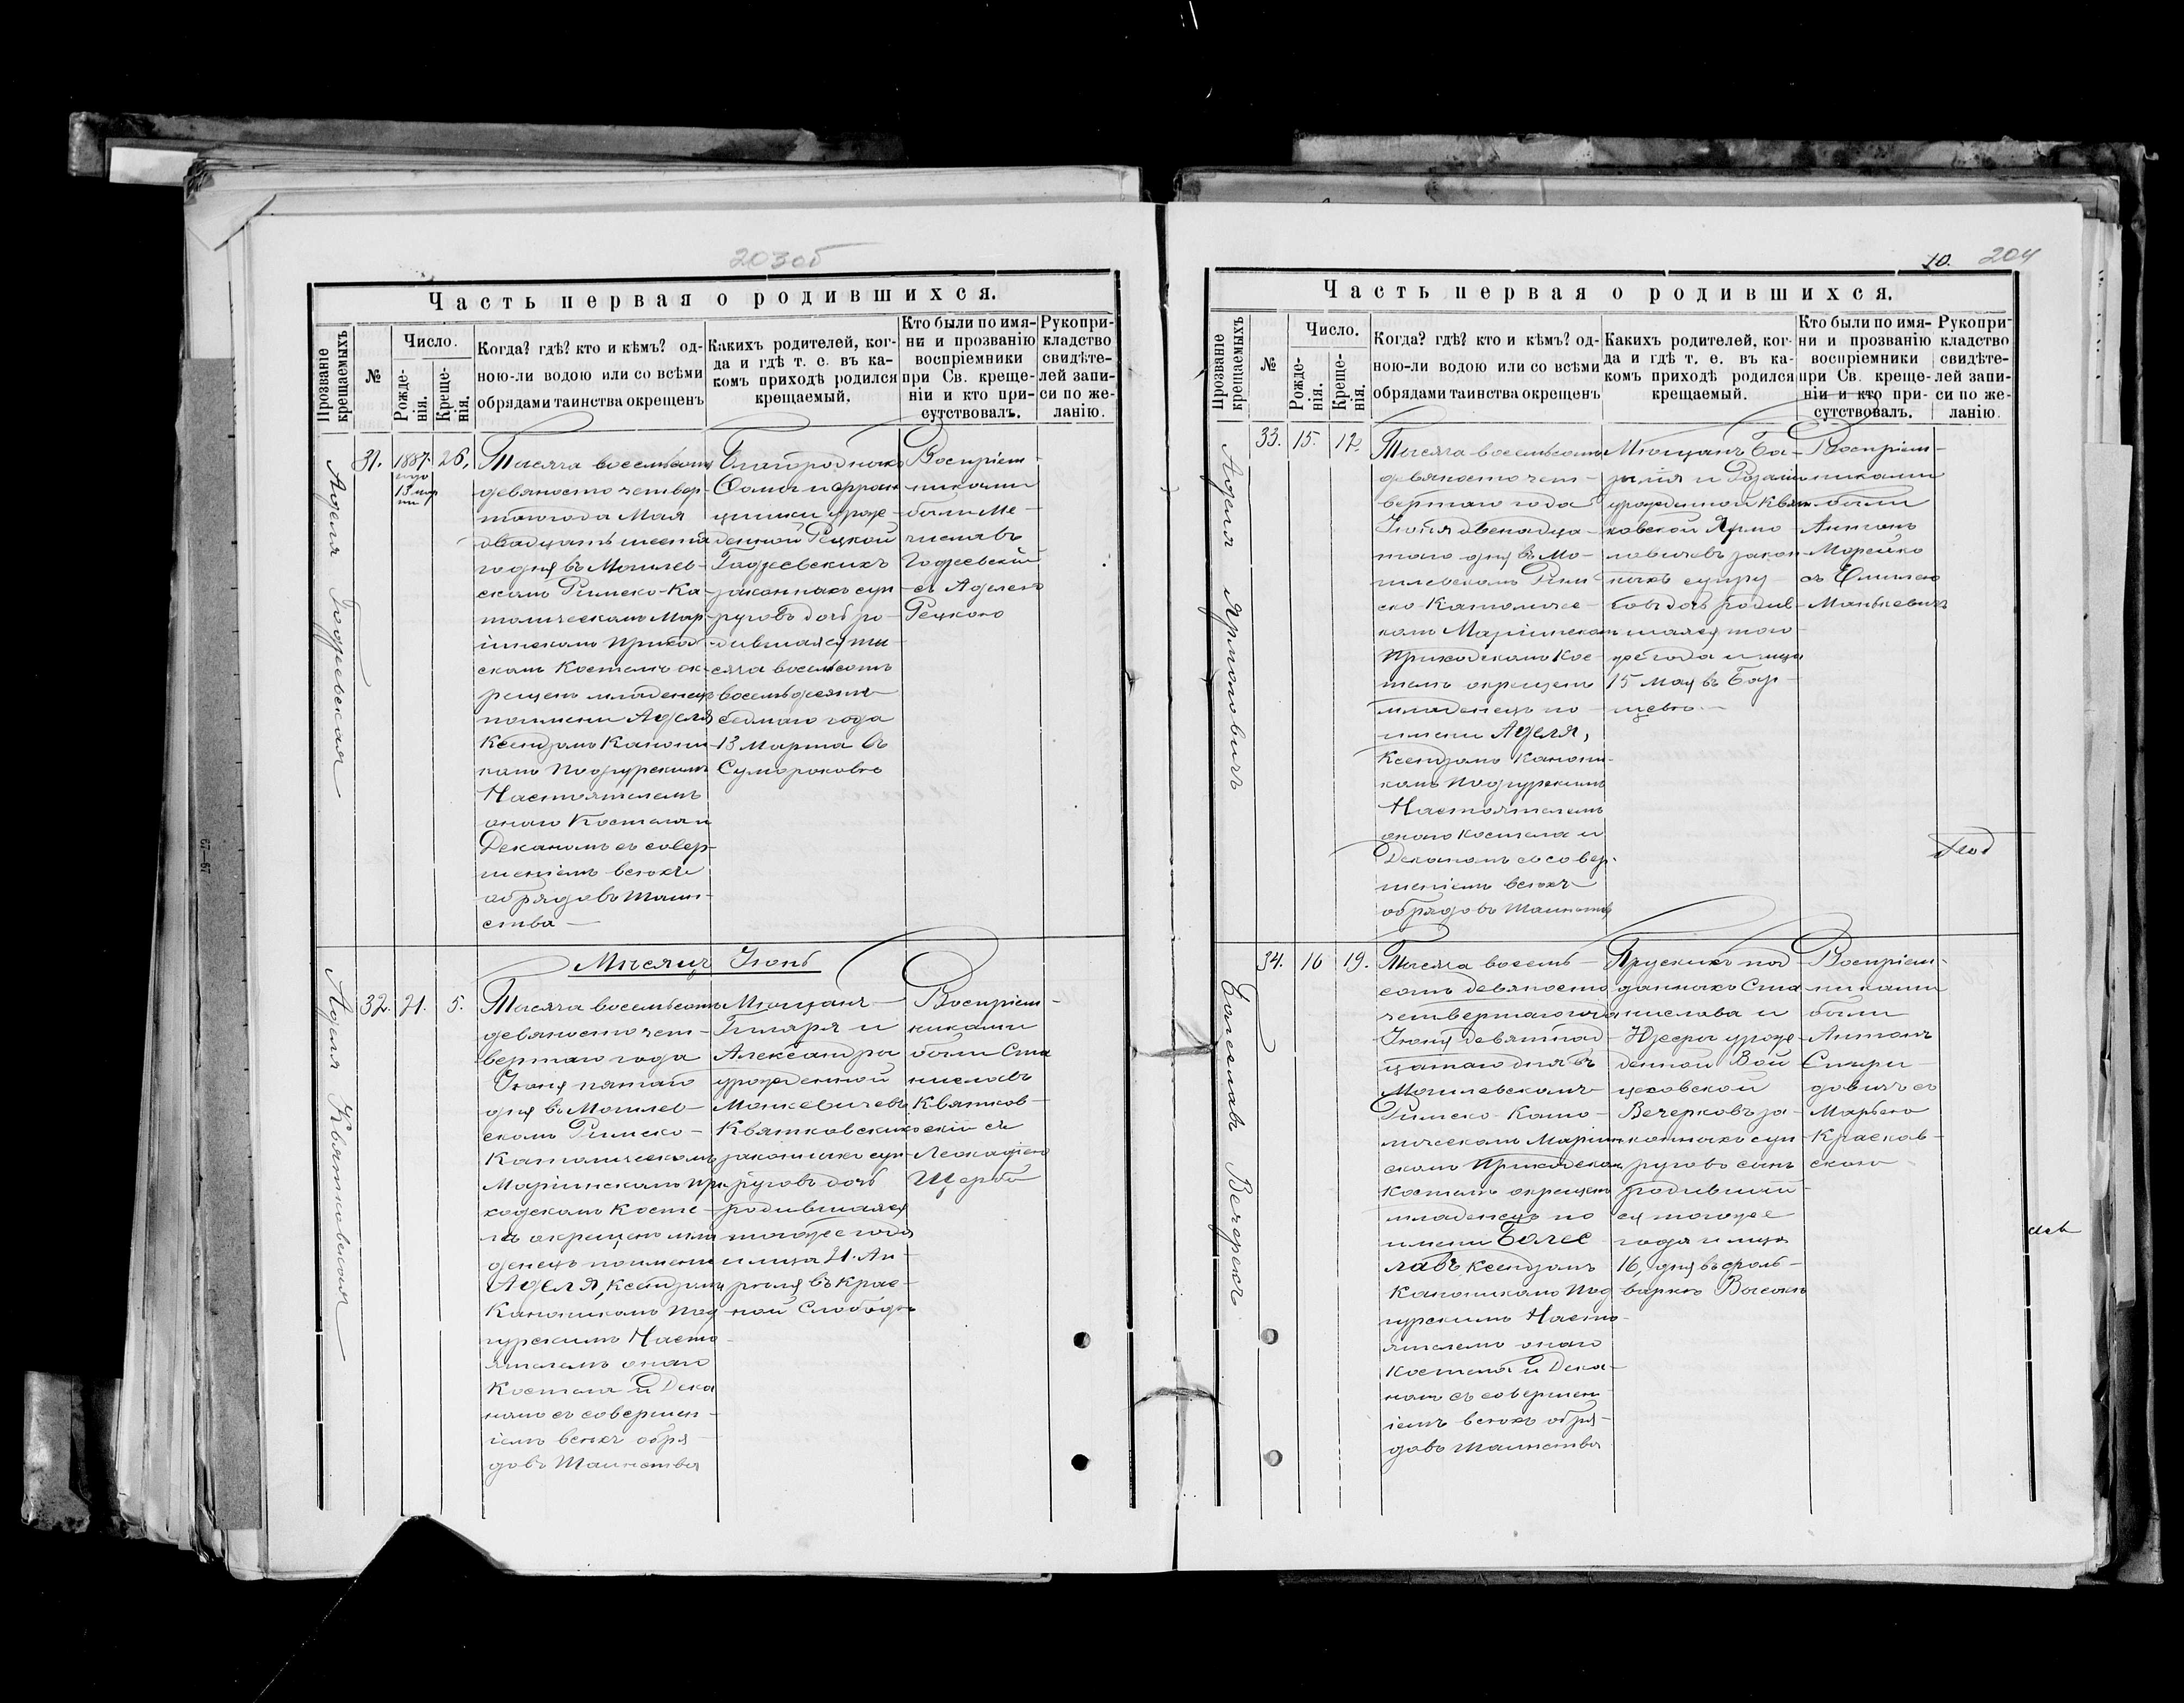 203об
Часть первая о родившихся.
Прозваніе крещаемыхъ
№
Число.
Рожде-
нія.
Креще-
нія.
Когда? гдѣ? кто и кѣмъ? од-
ною-ли водою или со всѣми
обрядами таинства окрещенъ
Какихъ родителей, ког-
да и гдѣ т. е. въ ка-
комъ приходѣ родился
крещаемый.
Кто были по имя-
ни и прозванію
воспріемники
при Св. креще-
ніи и кто при-
сутствовалъ.
Рукопри-
кладство
свидѣте-
лей запи-
си по же-
ланію.
Аделя
31.
1887.
года
13 мар
26.
Тысяча восемьсотъ
девяносто четвер-
таго года Мая
двадцать шеста
го дня въ Могилев-
скомъ Римско-Ка
толическомъ Мар
іинскомъ Приход
скомъ Костелѣ ок-
рещенъ младенецъ
по имени Аделя
Ксендзомъ Канони
комъ Подгурскимъ
Настоятелемъ
онаго Костела и
Деканомъ съ совер-
шеніемъ всѣхъ
обрядовъ Таин-
ства
Благородныхъ
Ѳомы и Фран
цишки урож-
денной Рецкой
законныхъ суп
руговъ дочь ро-
дившаяся ты
сяча восемьсотъ
восемьдесятъ
седмаго года
13 Марта въ
Сумароковѣ
Воспріем-
никами
были Ме-
числавъ
съ Аделею
Рецкою
Мѣсяцъ Іюнь
Аделя Квятковская
32.
21.
5.
Тысяча восемьсотъ
девяносто чет-
вертаго года
Іюня пятаго
дня въ Могилев-
скомъ Римско-
Католическомъ
Маріинскомъ При
ходскомъ Косте-
лѣ окрещенъ мла
денецъ по имени
Аделя, Ксендзомъ
Каноникомъ Под
гурскимъ Насто-
ятелемъ онаго
Костела и Дека
номъ съ совершен-
іемъ всѣхъ обря-
довъ Таинства
Мѣщанъ
Гиляря и
Александры
урожденной
Манкевичевъ
Квятковскихъ
законныхъ суп-
руговъ дочь
родившаяся
тогоже года
21. Ап-
рѣля въ Крас-
ной Слободѣ
Воспріем-
никами
были Ста
ниславъ
Квятков-
скій съ
Леокадіею
Щерба
10.
204
Часть первая о родившихся.
Прозваніе крещаемыхъ
№
Число.
Рожде-
нія.
Креще-
нія.
Когда? гдѣ? кто и кѣмъ? од-
ною-ли водою или со всѣми
обрядами таинства окрещенъ
Какихъ родителей, ког-
да и гдѣ т. е. въ ка-
комъ приходѣ родился
крещаемый.
Кто были по имя-
ни и прозванію
воспріемники
при Св. креще-
ніи и кто при-
сутствовалъ.
Рукопри-
кладство
свидѣте-
лей запи-
си по же-
ланію.
Аделя Ярмоловичъ
33.
15.
12.
Тысяча восемьсотъ
девяносто чет-
вертаго года
Іюня двенадца-
таго дня въ Мо-
гилевскомъ Рим-
ско Католичес-
комъ Маріинскомъ
Приходскомъ Кос-
телѣ окрещенъ
младенецъ по
имени Аделя,
Ксендзомъ Канони-
комъ Подгурскимъ
Настоятелемъ
онаго костела и
Деканомъ съ совер-
шеніемъ всѣхъ
обрядовъ Таинства
Мѣщанъ Ба-
зылія и Розаліи
урожденной Квят
ковской Ярмо
ловичевъ закон
ныхъ супру-
говъ дочь родив-
шаяся того
же года и мца
15 Мая въ
Воспріем-
никами
были
Антонъ
Морейко
съ Емилею
Манькевичъ
Болеславъ Вечерекъ
34.
16
19.
Тысяча восемь-
сотъ девяносто
четвертаго года
Іюня девятнад-
цатаго дня въ
Могилевскомъ
Римско-Като-
лическомъ Маріин-
скомъ Приходскомъ
костелѣ окрещенъ
младенецъ по
имени Болес-
лавъ, ксендзомъ
Каноникомъ Под
гурскимъ Насто-
ятелемъ онаго
Костела и Дека-
номъ съ совершен
іемъ всѣхъ обря-
довъ Таинства
Прускихъ под
данныхъ Ста
нислава и
Юзефы урож
денной Вой
цеховской
Вечерковъ за-
конныхъ суп
руговъ сынъ
родившій
ся тогоже
года и мца
16, дня въ фоль-
варкѣ Высокѣ
Воспріем-
никами
были
Антонъ
Спири
довичъ съ
Марьею
Красков-
скою